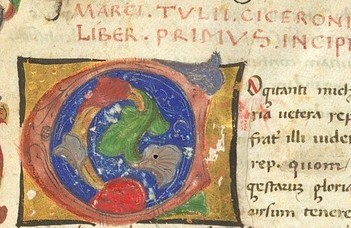 MARCI. TULII. CICERONI
LIBER. PRIMVS. INCIP
Ogitanti mich
ria uetera rep
frat̄ illi uider
rep. quom
gestarum gloria
cursum tenere